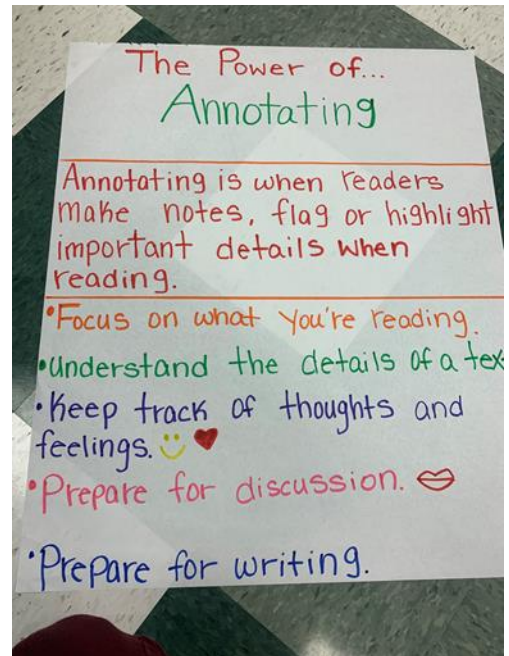 The Power of...
Annotating
Annotating is when readers
make notes, flag or highlight
important details when
reading.
•Focus on what you're reading.
•understand the details of a tex
•Keep track of thoughts and
feelings.
•Prepare for discussion.
•Prepare for writing.